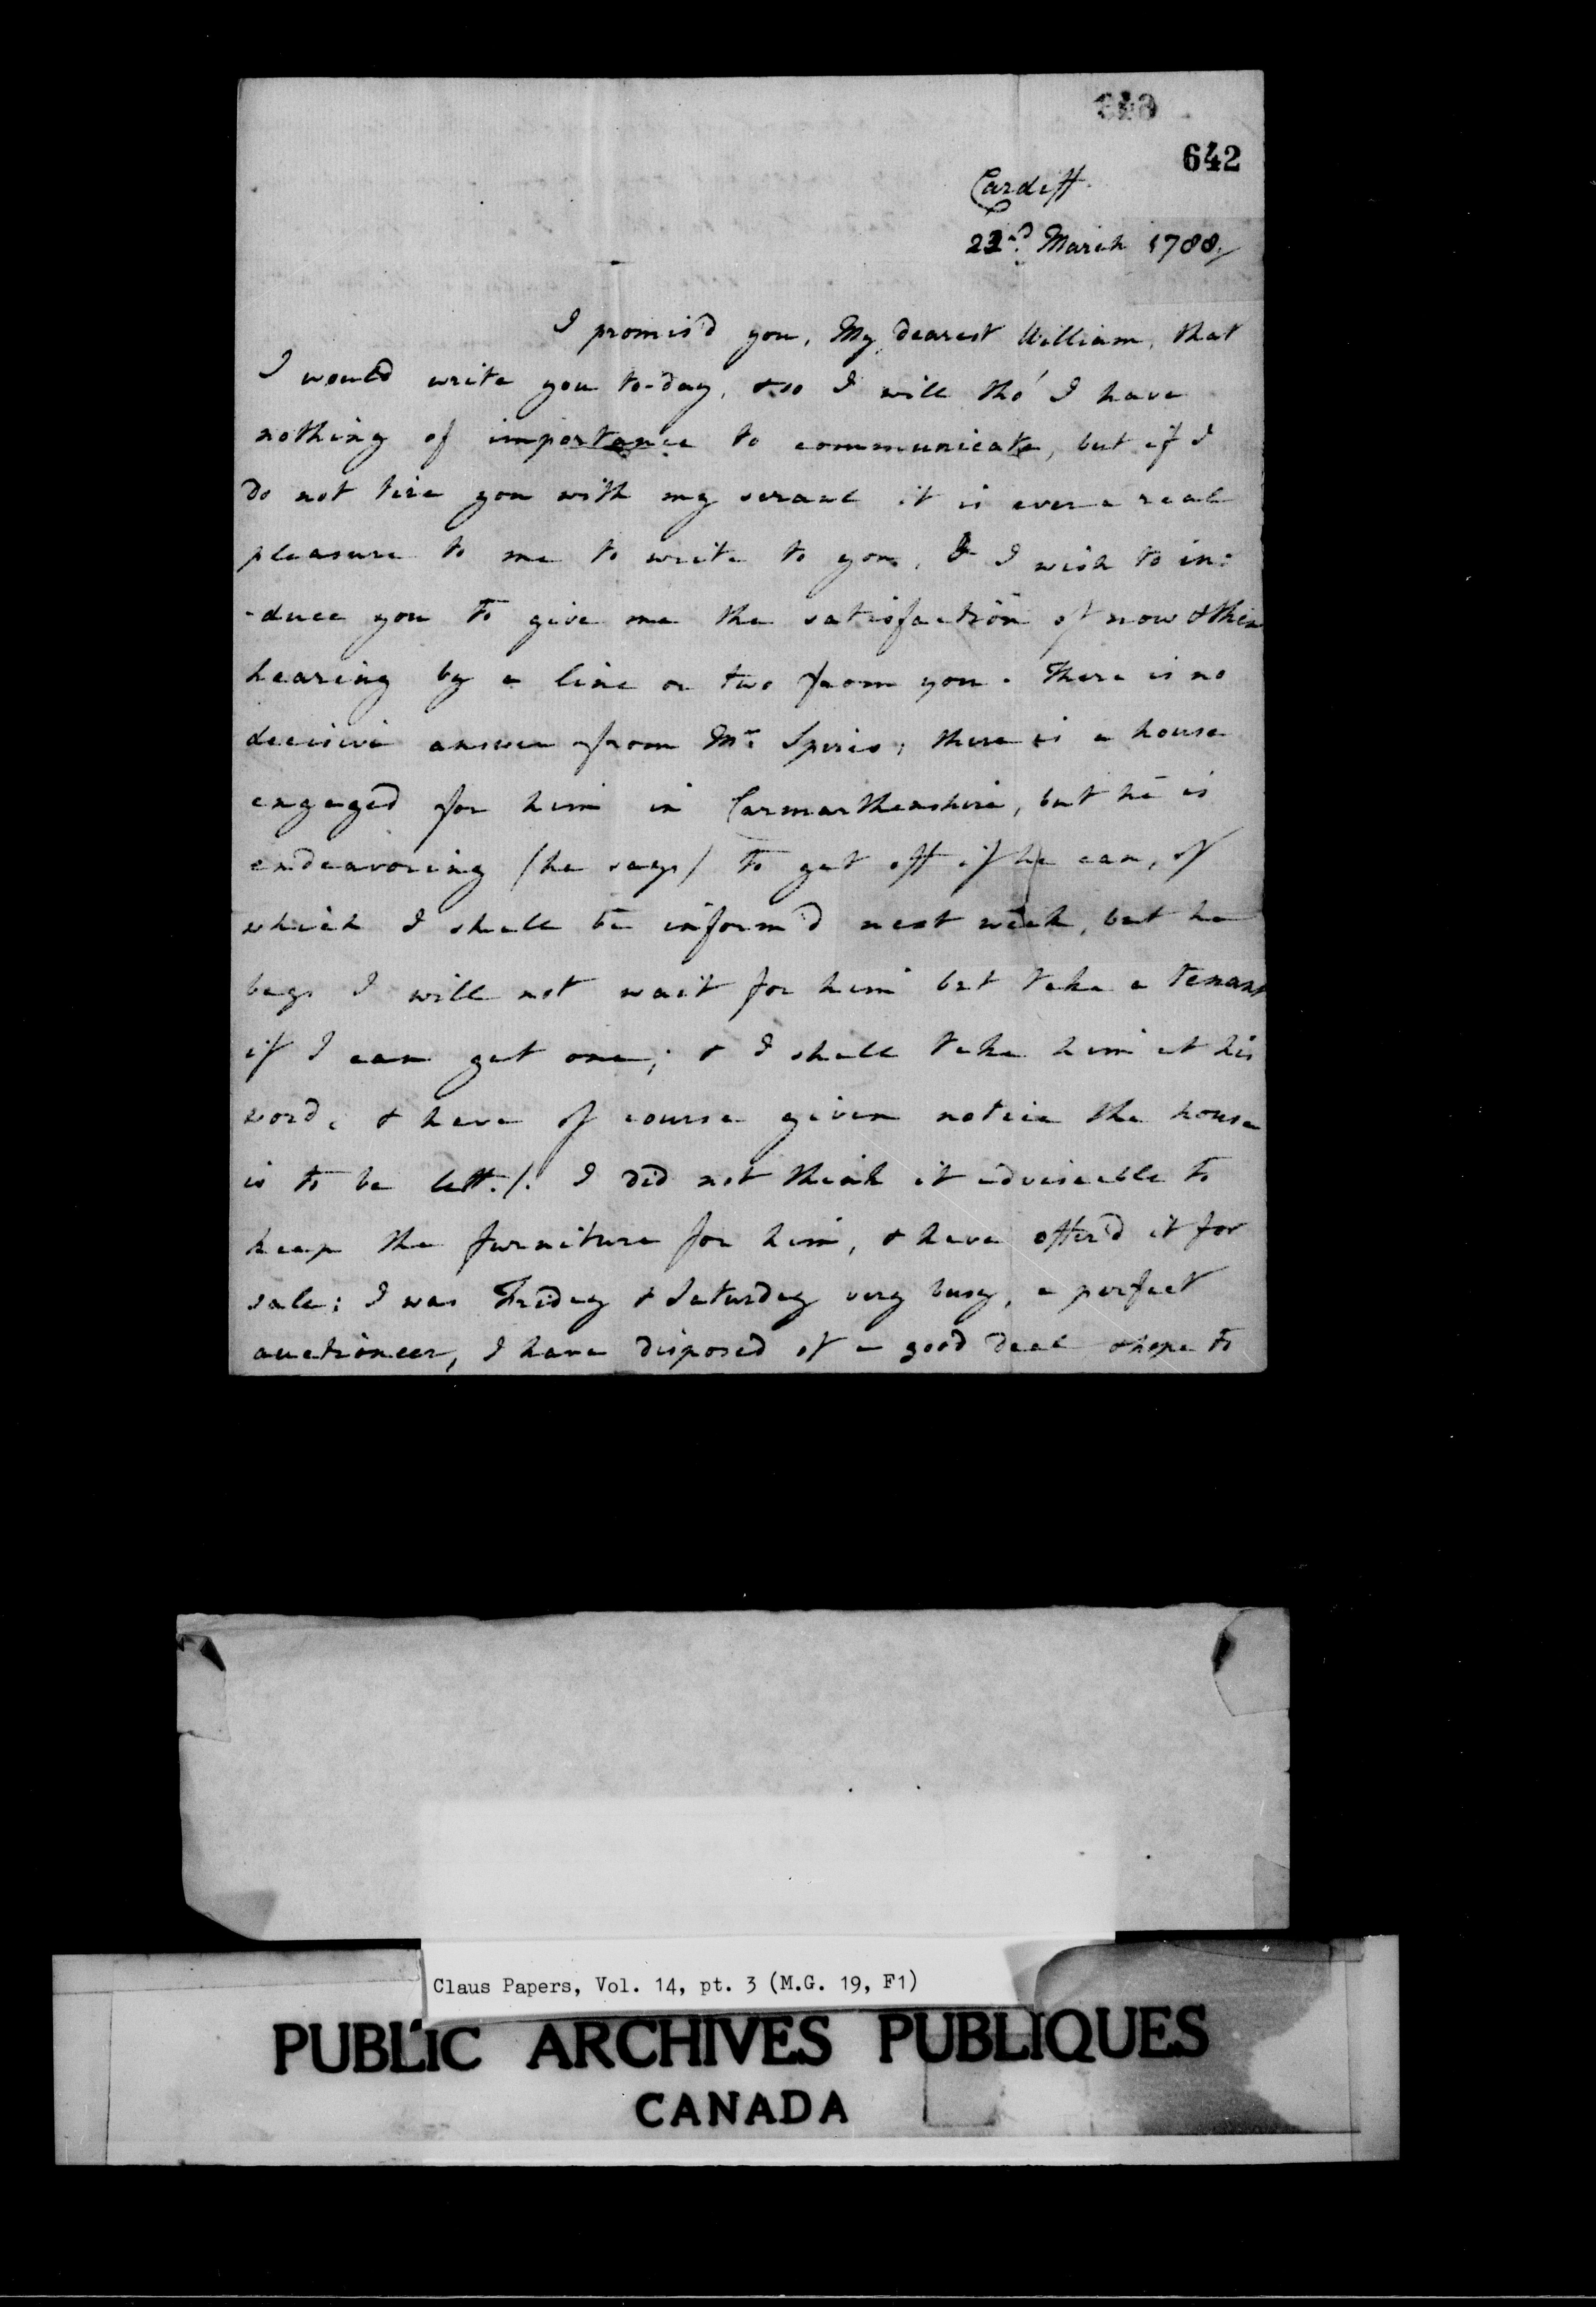 642
Cardiff.
22nd. March 1788/
I promis'd you, My dearest William, that
I would write you to-day, & so I will tho' I have
nothing of importance to communicate, but if I
do not tire you with my scrawl it is ever a real
pleasure to me to write to you, & I wish to in:
-duce you to give me the satisfaction of now & then
hearing by a line or two from you. There is no
decisive answer from Mr. ; there is a house
engaged for him in Carmarthenshire, but he is
endeavoring /he says/ to get off if he can, of
which I shall be inform'd next week, but he
begs I will not wait for him but take a tenant
if I can get one; & I shall take him at his
word, & have of course given notice the house
is to be lett./. I did not think it adviseable to
keep the furniture for him, & have offer'd it for
sale; I was Friday & Saturday very busy, a perfect
auctioneer, I have disposed of a good deal & hope to
Claus Papers, Vol. 14, pt. 3 (M.G. 19, F1)
PUBLIC ARCHIVES PUBLIQUES
CANADA